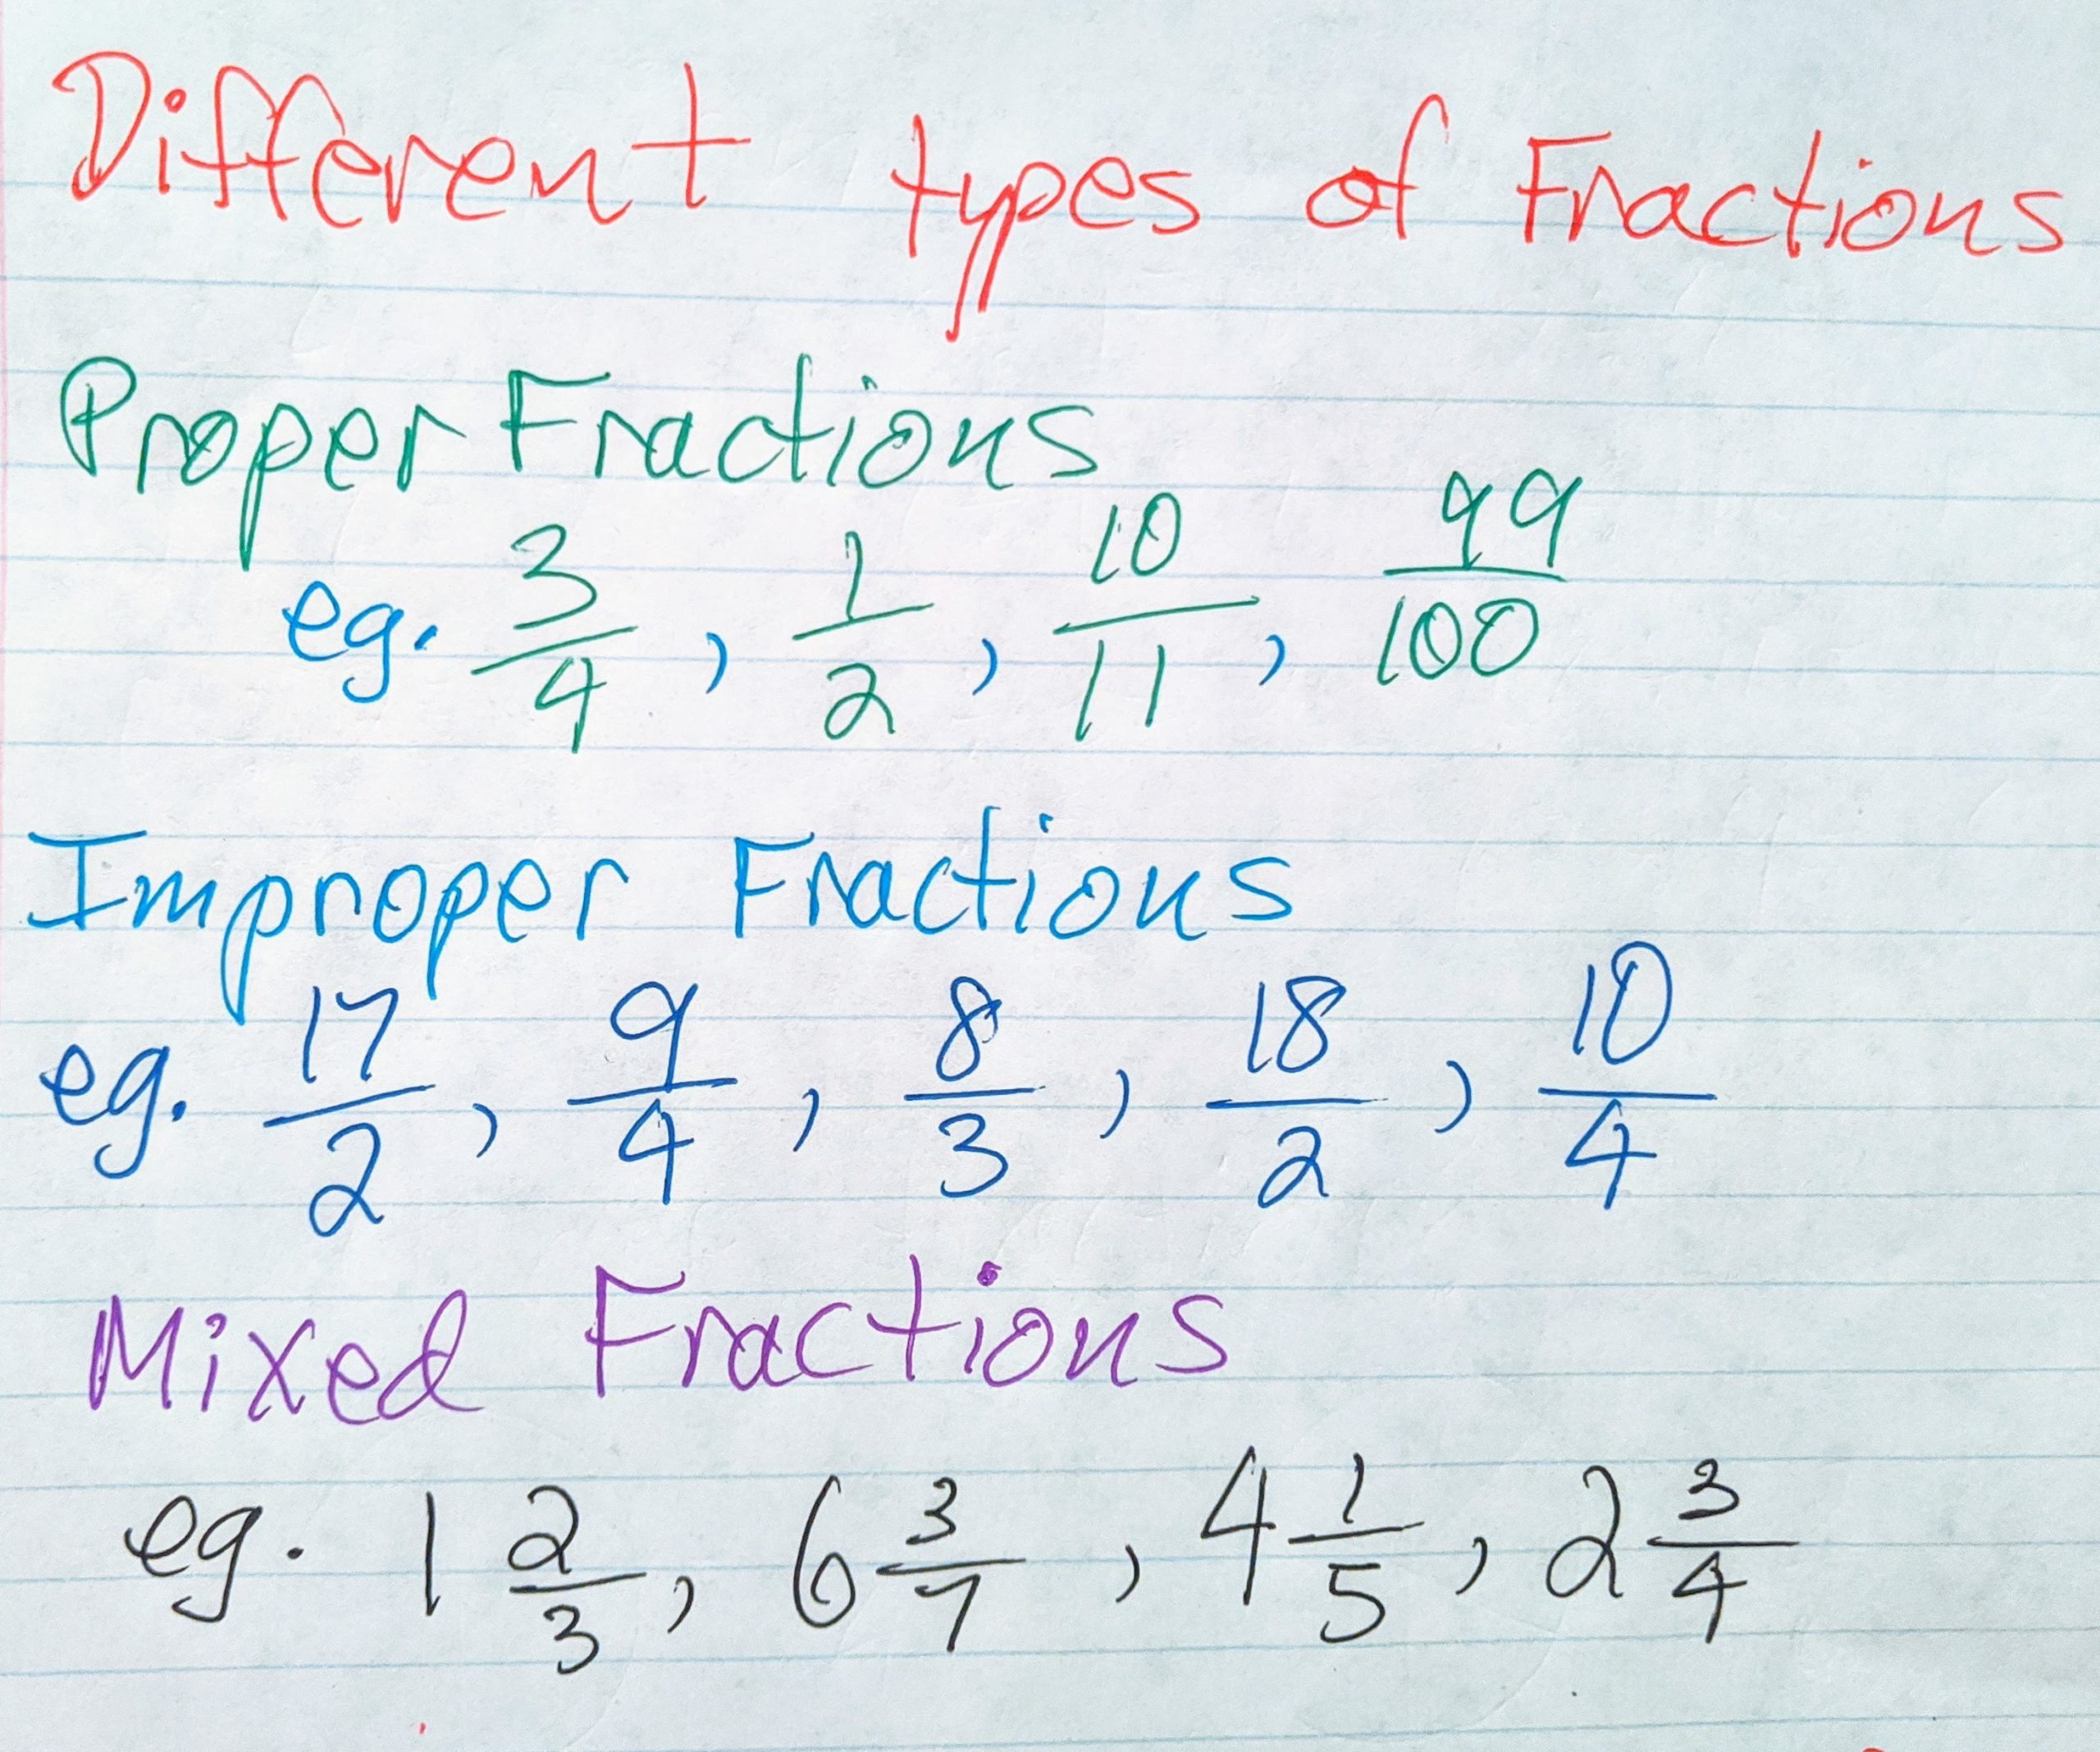 Different types of Fractions
Proper Fractions
eg. 3/4, 1/2, 10/11, 99/100
Improper Fractions
eg. 17/2, 9/4, 8/3, 18/2, 10/4
Mixed Fractions
eg. 1 2/3, 6 3/7, 4 1/5, 2 3/4